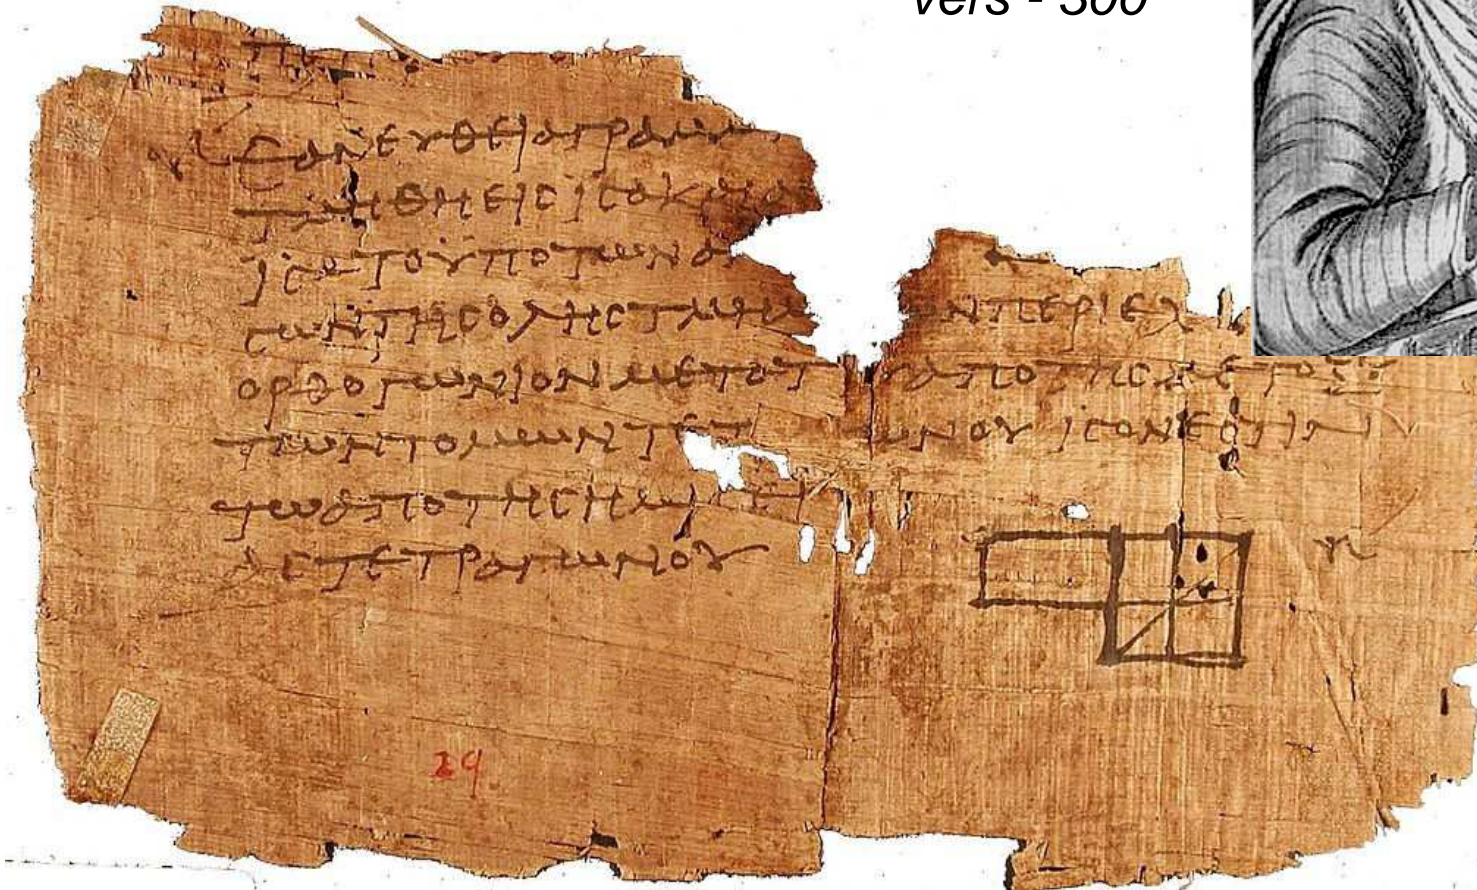 vers - 300
ΕΑΝΕΥΘΕΙΑΓΡΑΜΜ
ΤΜΗΘΗΕΙCΙCΑΚΑΙΑ
ΙCΑΤΟΥΠΟΤΩΝΑ
CΩΝΤΗCΟΛΗCΤΜΗΜ ΩΝΠΕΡΙΕΧ
ΟΡΘΟΓΩΝΙΟΝΜΕΤΟΤ ΑΠΟΤΗCΜΕΤΟΞΥ
ΤΩΝΤΟΜΩΝΤΕΤ ΩΝΟΥΙCΟΝΕCΤΙΝ
ΤΩΑΠΟΤΗCΗΜΙC
ΑCΤΕΤΡΑΓΩΝΟΥ
29